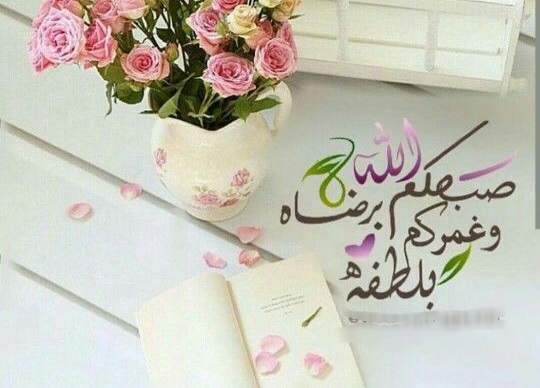 صبحكم الله برضاه
وغمركم
بلطفه